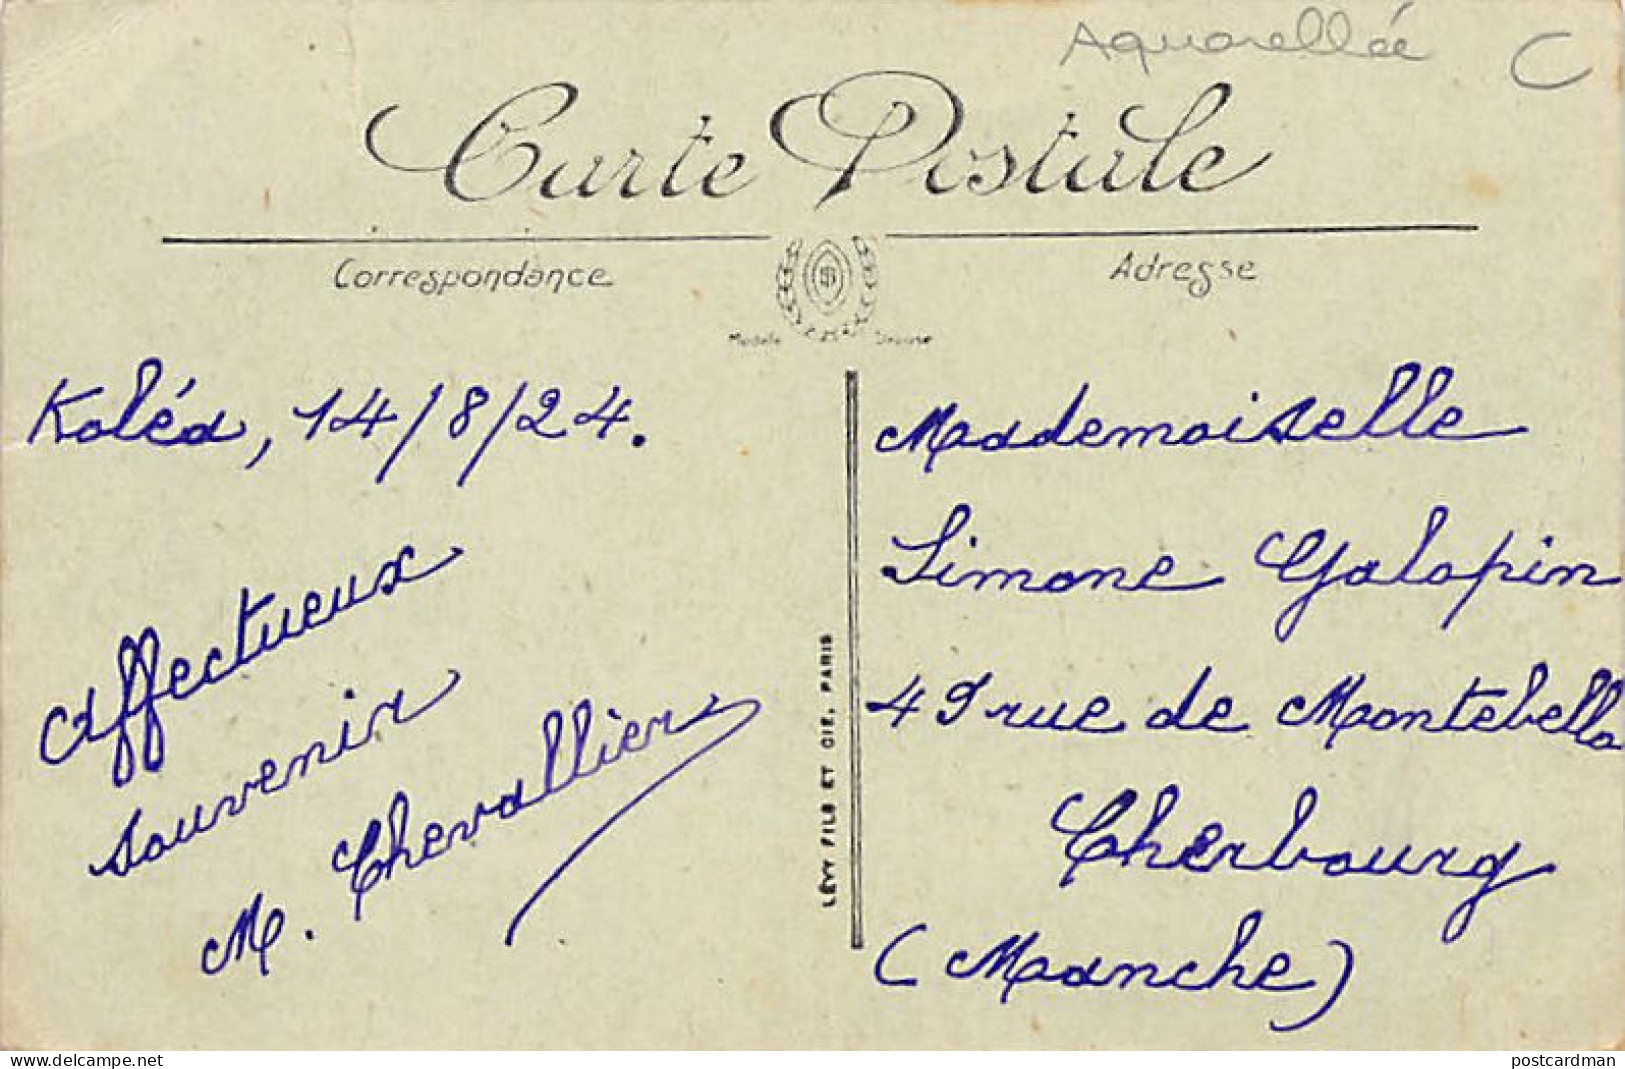 Aquarellée C
Carte Postale
Correspondance
Adresse
Modèle Déposé
Koléa, 14/8/24.
Affectueux
souvenir
M. Chevallier
LÉVY FILS ET CIE, PARIS
Mademoiselle
Simone Galopin
49 rue de Montebello
Cherbourg
(Manche)
www.delcampe.net
postcardman